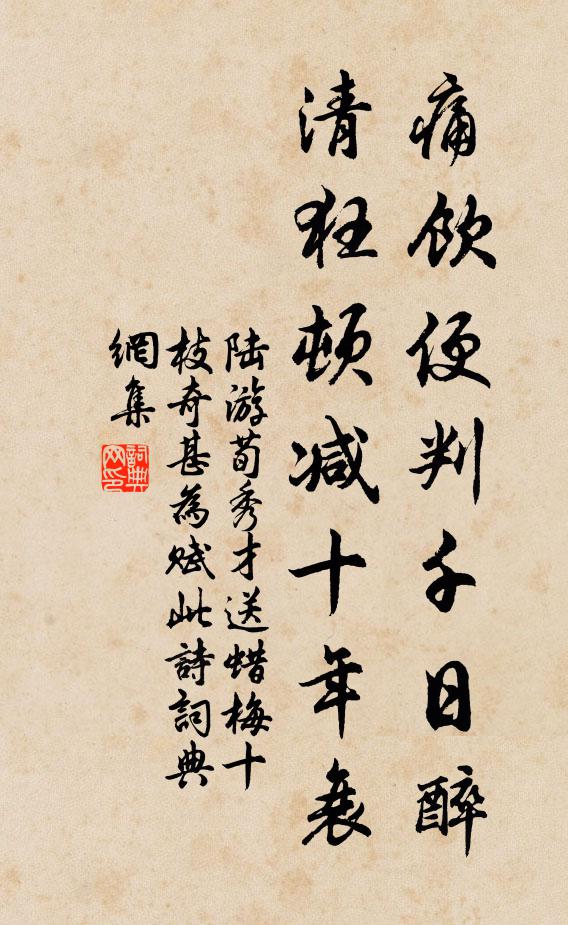 痛飲便判千日醉
清狂頓减十年衰
陆游荀秀才送蜡梅十
枝奇甚為赋此詩詞典
網集
詞典网印